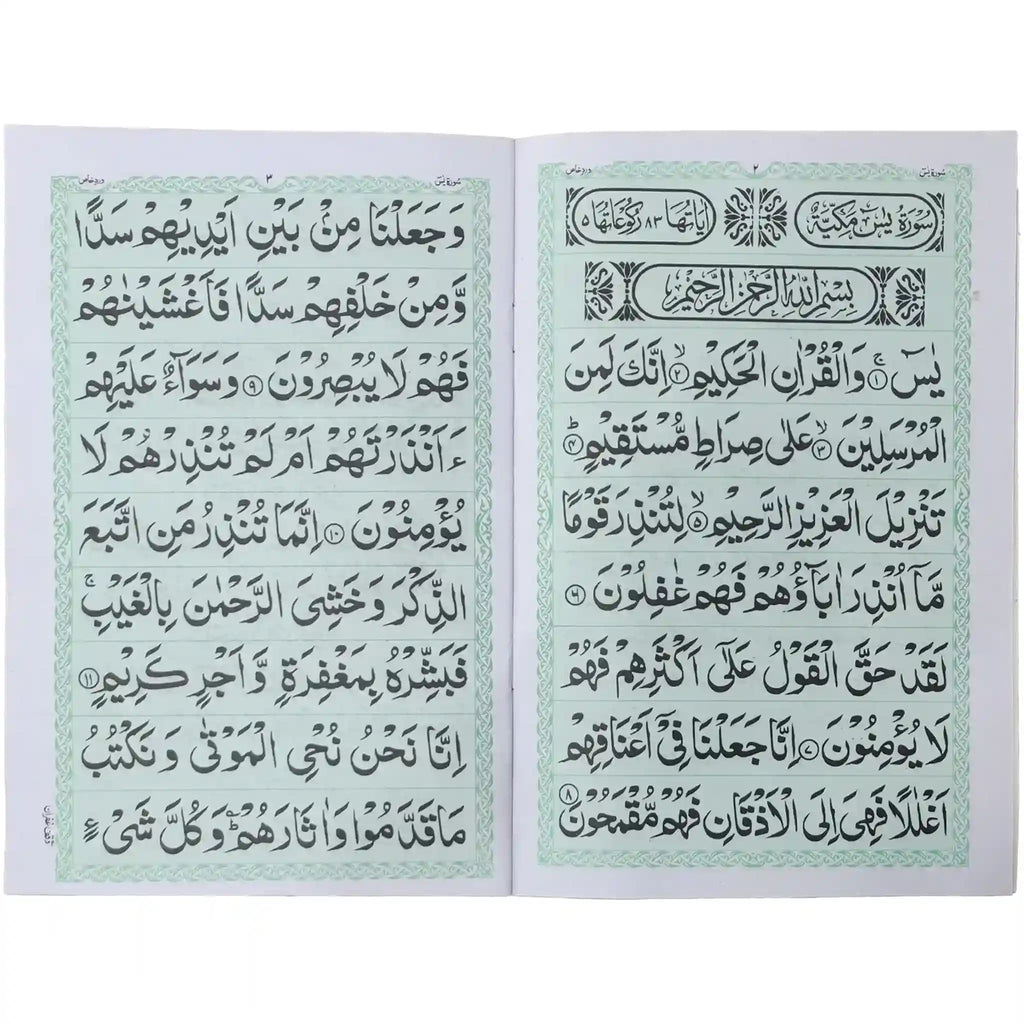 سورة يٰسٓ
٢
ورد خاص
سُوْرَةُ يٰسٓ مَكِّيَّةٌ
اٰيَاتُهَا ٨٣ رُكُوْعَاتُهَا ٥
بِسْمِ اللّٰهِ الرَّحْمٰنِ الرَّحِيْمِ
يٰسٓ ۚ﴿١﴾ وَالْقُرْاٰنِ الْحَكِيْمِ ۙ﴿٢﴾ اِنَّكَ لَمِنَ
الْمُرْسَلِيْنَ ۙ﴿٣﴾ عَلٰى صِرَاطٍ مُّسْتَقِيْمٍ ؕ﴿٤﴾
تَنْزِيْلَ الْعَزِيْزِ الرَّحِيْمِ ۙ﴿٥﴾ لِتُنْذِرَ قَوْمًا
مَّآ اُنْذِرَ اٰبَآؤُهُمْ فَهُمْ غٰفِلُوْنَ ﴿٦﴾
لَقَدْ حَقَّ الْقَوْلُ عَلٰٓى اَكْثَرِهِمْ فَهُمْ
لَا يُؤْمِنُوْنَ ﴿٧﴾ اِنَّا جَعَلْنَا فِيْٓ اَعْنَاقِهِمْ
اَغْلٰلًا فَهِيَ اِلَى الْاَذْقَانِ فَهُمْ مُّقْمَحُوْنَ ﴿٨﴾
سورة يٰسٓ
٣
ورد خاص
وَجَعَلْنَا مِنْۢ بَيْنِ اَيْدِيْهِمْ سَدًّا
وَّمِنْ خَلْفِهِمْ سَدًّا فَاَغْشَيْنٰهُمْ
فَهُمْ لَا يُبْصِرُوْنَ ﴿٩﴾ وَسَوَآءٌ عَلَيْهِمْ
ءَاَنْذَرْتَهُمْ اَمْ لَمْ تُنْذِرْهُمْ لَا
يُؤْمِنُوْنَ ﴿١٠﴾ اِنَّمَا تُنْذِرُ مَنِ اتَّبَعَ
الذِّكْرَ وَخَشِيَ الرَّحْمٰنَ بِالْغَيْبِ ۚ
فَبَشِّرْهُ بِمَغْفِرَةٍ وَّاَجْرٍ كَرِيْمٍ ﴿١١﴾
اِنَّا نَحْنُ نُحْيِ الْمَوْتٰى وَنَكْتُبُ
مَا قَدَّمُوْا وَاٰثَارَهُمْ ؕ وَكُلَّ شَيْءٍ